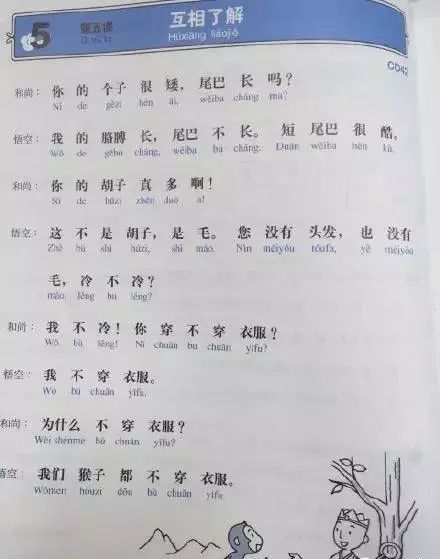 5 第五课 互相了解
Dì wǔ kè Hùxiāng liǎojiě
CD42
和尚： 你 的 个子 很 矮， 尾巴 长 吗？
Nǐ de gèzi hěn ǎi, wěiba cháng ma?
悟空： 我 的 胳膊 长， 尾巴 不 长。 短 尾巴 很 酷。
Wǒ de gēbo cháng, wěiba bù cháng. Duǎn wěiba hěn kù.
和尚： 你 的 胡子 真 多 啊！
Nǐ de húzi zhēn duō a!
悟空： 这 不 是 胡子， 是 毛。 您 没有 头发， 也 没有
Zhè bú shì húzi, shì máo. Nín méiyǒu tóufa, yě méiyǒu
毛， 冷 不 冷？
máo, lěng bu lěng?
和尚： 我 不 冷！ 你 穿 不 穿 衣服？
Wǒ bù lěng! Nǐ chuān bu chuān yīfu?
悟空： 我 不 穿 衣服。
Wǒ bù chuān yīfu.
和尚： 为什么 不 穿 衣服？
Wèi shénme bù chuān yīfu?
悟空： 我们 猴子 都 不 穿 衣服。
Wǒmen hóuzi dōu bù chuān yīfu.